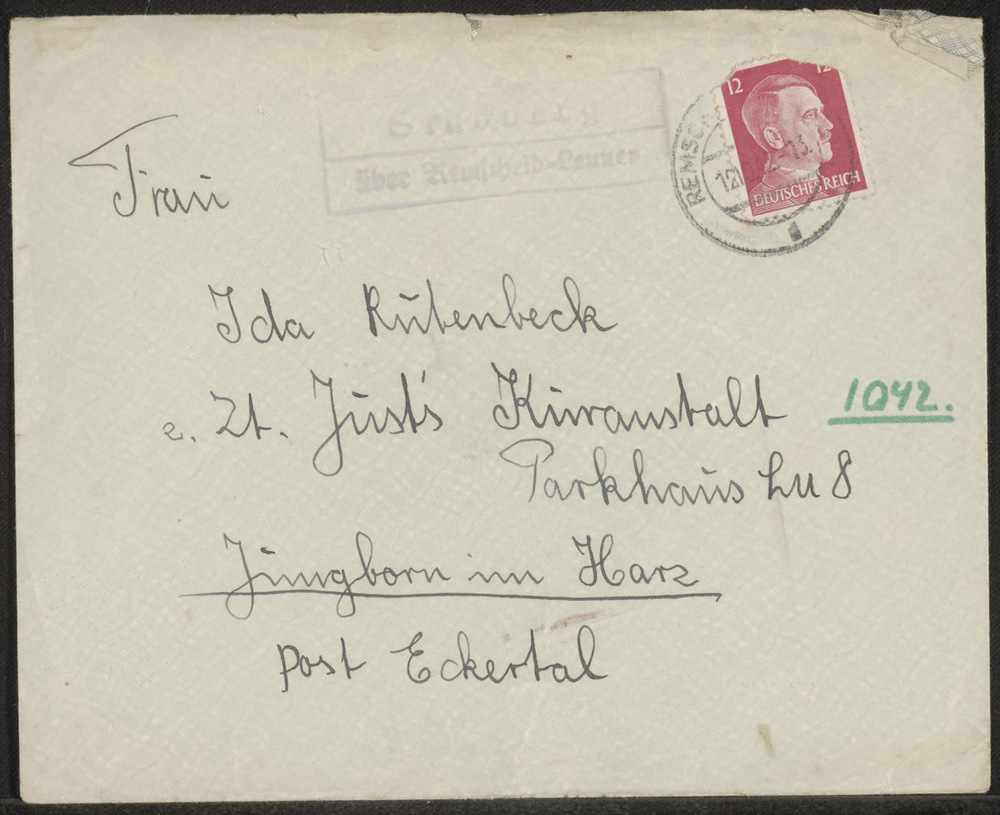 über Remscheid-Lenner
12
12
REMSC
DEUTSCHES REICH
Frau
Ida Rutenbeck
z. Zt. Just's Kuranstalt
1042.
Parkhaus Lu 8
Jungborn im Harz
Post Eckertal